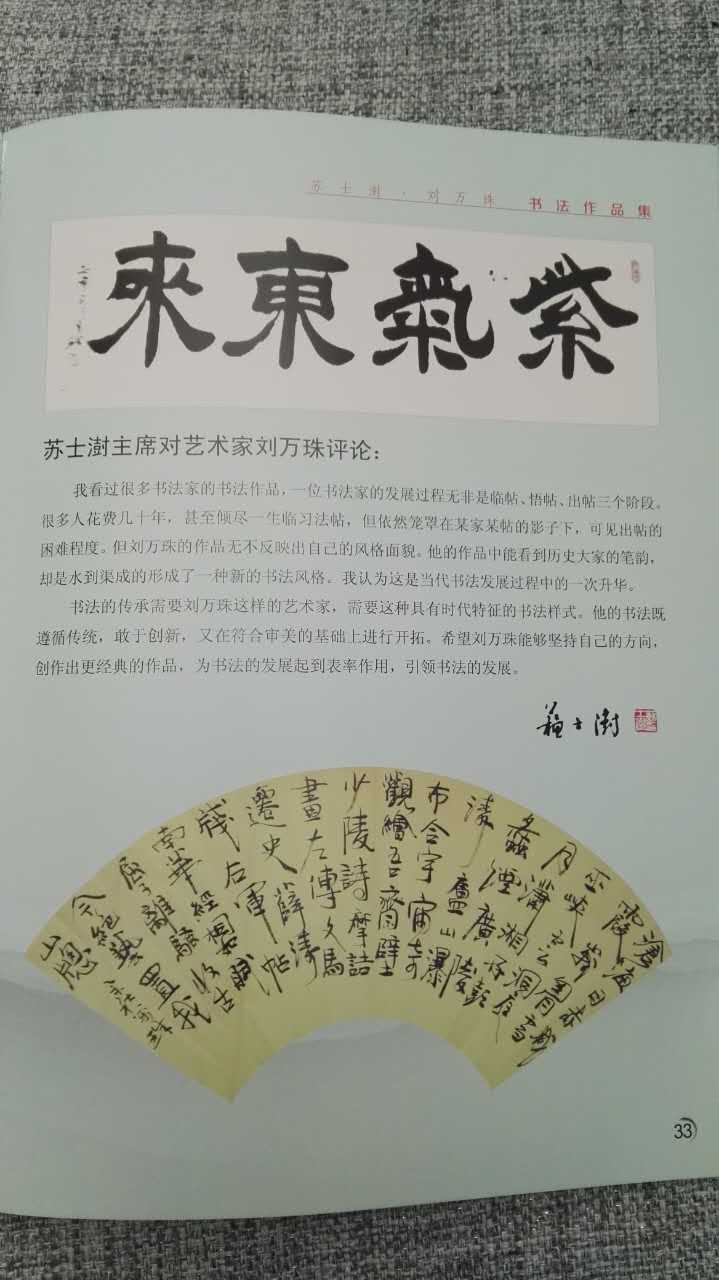 苏士澍·刘万珠 书法作品集
紫氣東來
苏士澍主席对艺术家刘万珠评论：
我看过很多书法家的书法作品，一位书法家的发展过程无非是临帖、悟帖、出帖三个阶段。
很多人花费几十年，甚至倾尽一生临习法帖，但依然笼罩在某家某帖的影子下，可见出帖的
困难程度。但刘万珠的作品无不反映出自己的风格面貌。他的作品中能看到历史大家的笔韵，
却是水到渠成的形成了一种新的书法风格。我认为这是当代书法发展过程中的一次升华。
书法的传承需要刘万珠这样的艺术家，需要这种具有时代特征的书法样式。他的书法既
遵循传统，敢于创新，又在符合审美的基础上进行开拓。希望刘万珠能够坚持自己的方向，
创作出更经典的作品，为书法的发展起到表率作用，引领书法的发展。
蘇士澍
滄海日赤
霞
巫峽雲洞庭
月
蠡煙瀟湘
廣陵
濤廬山瀑
布合宇宙奇
觀繪吾齋壁
少陵詩摩詰
畫左傳文馬
遷史薛濤
箋右軍帖
南華經相如賦
離騷收古
今絕藝置我
山窓
33